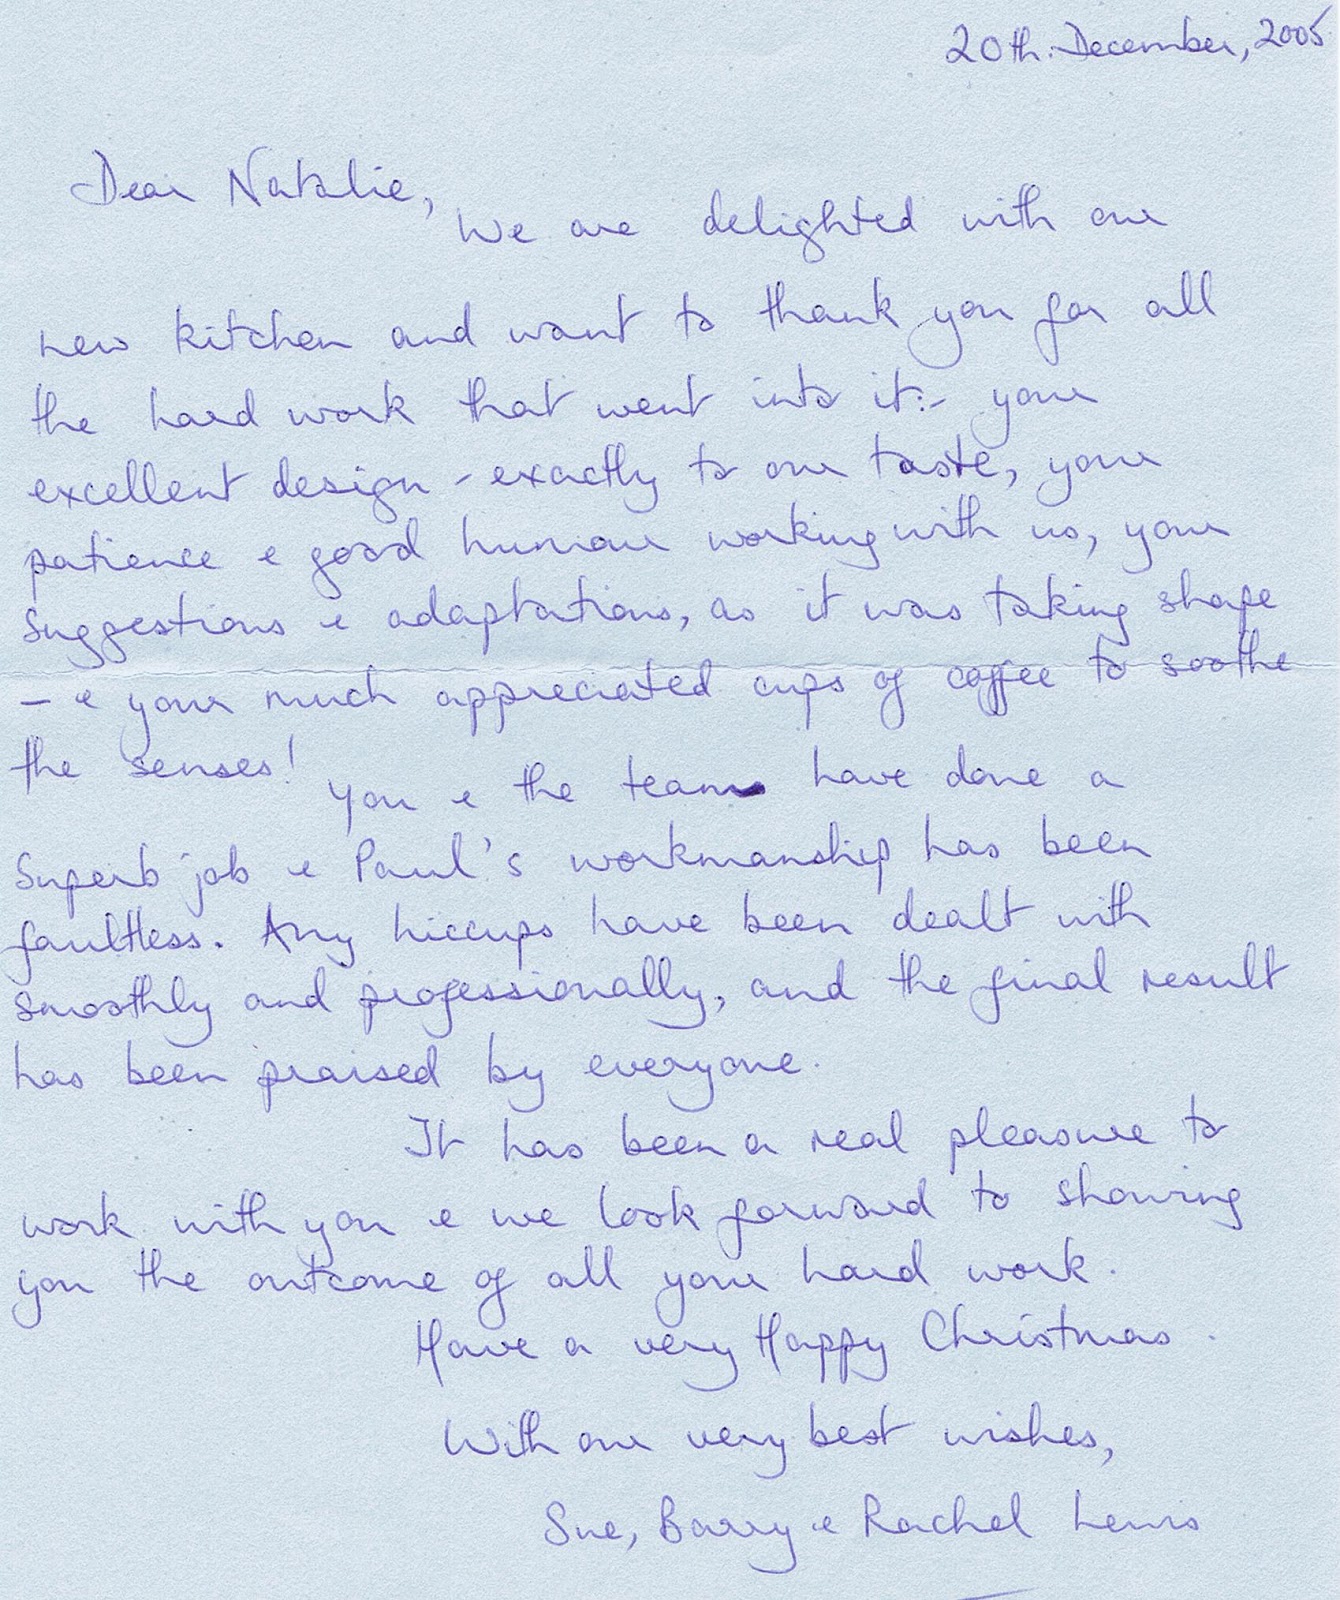 20th. December, 2005
Dear Natalie,
We are delighted with our
new kitchen and want to thank you for all
the hard work that went into it:- your
excellent design - exactly to our taste, your
patience & good humour working with us, your
suggestions & adaptations, as it was taking shape
- & your much appreciated cups of coffee to soothe
the senses!
You & the team have done a
superb job & Paul's workmanship has been
faultless. Any hiccups have been dealt with
smoothly and professionally, and the final result
has been praised by everyone.
It has been a real pleasure to
work with you & we look forward to showing
you the outcome of all your hard work.
Have a very Happy Christmas.
With our very best wishes,
Sue, Barry & Rachel Lewis